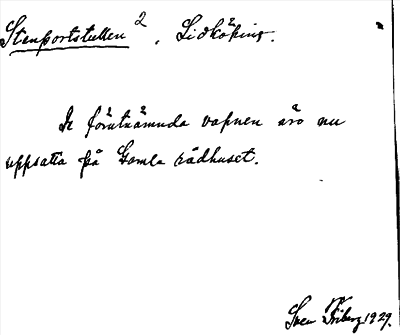 Stenportstullen 2, Lidköping.
De förutnämnda vapnen äro nu
uppsatta på Gamla rådhuset.
Sven Friberg 1929.